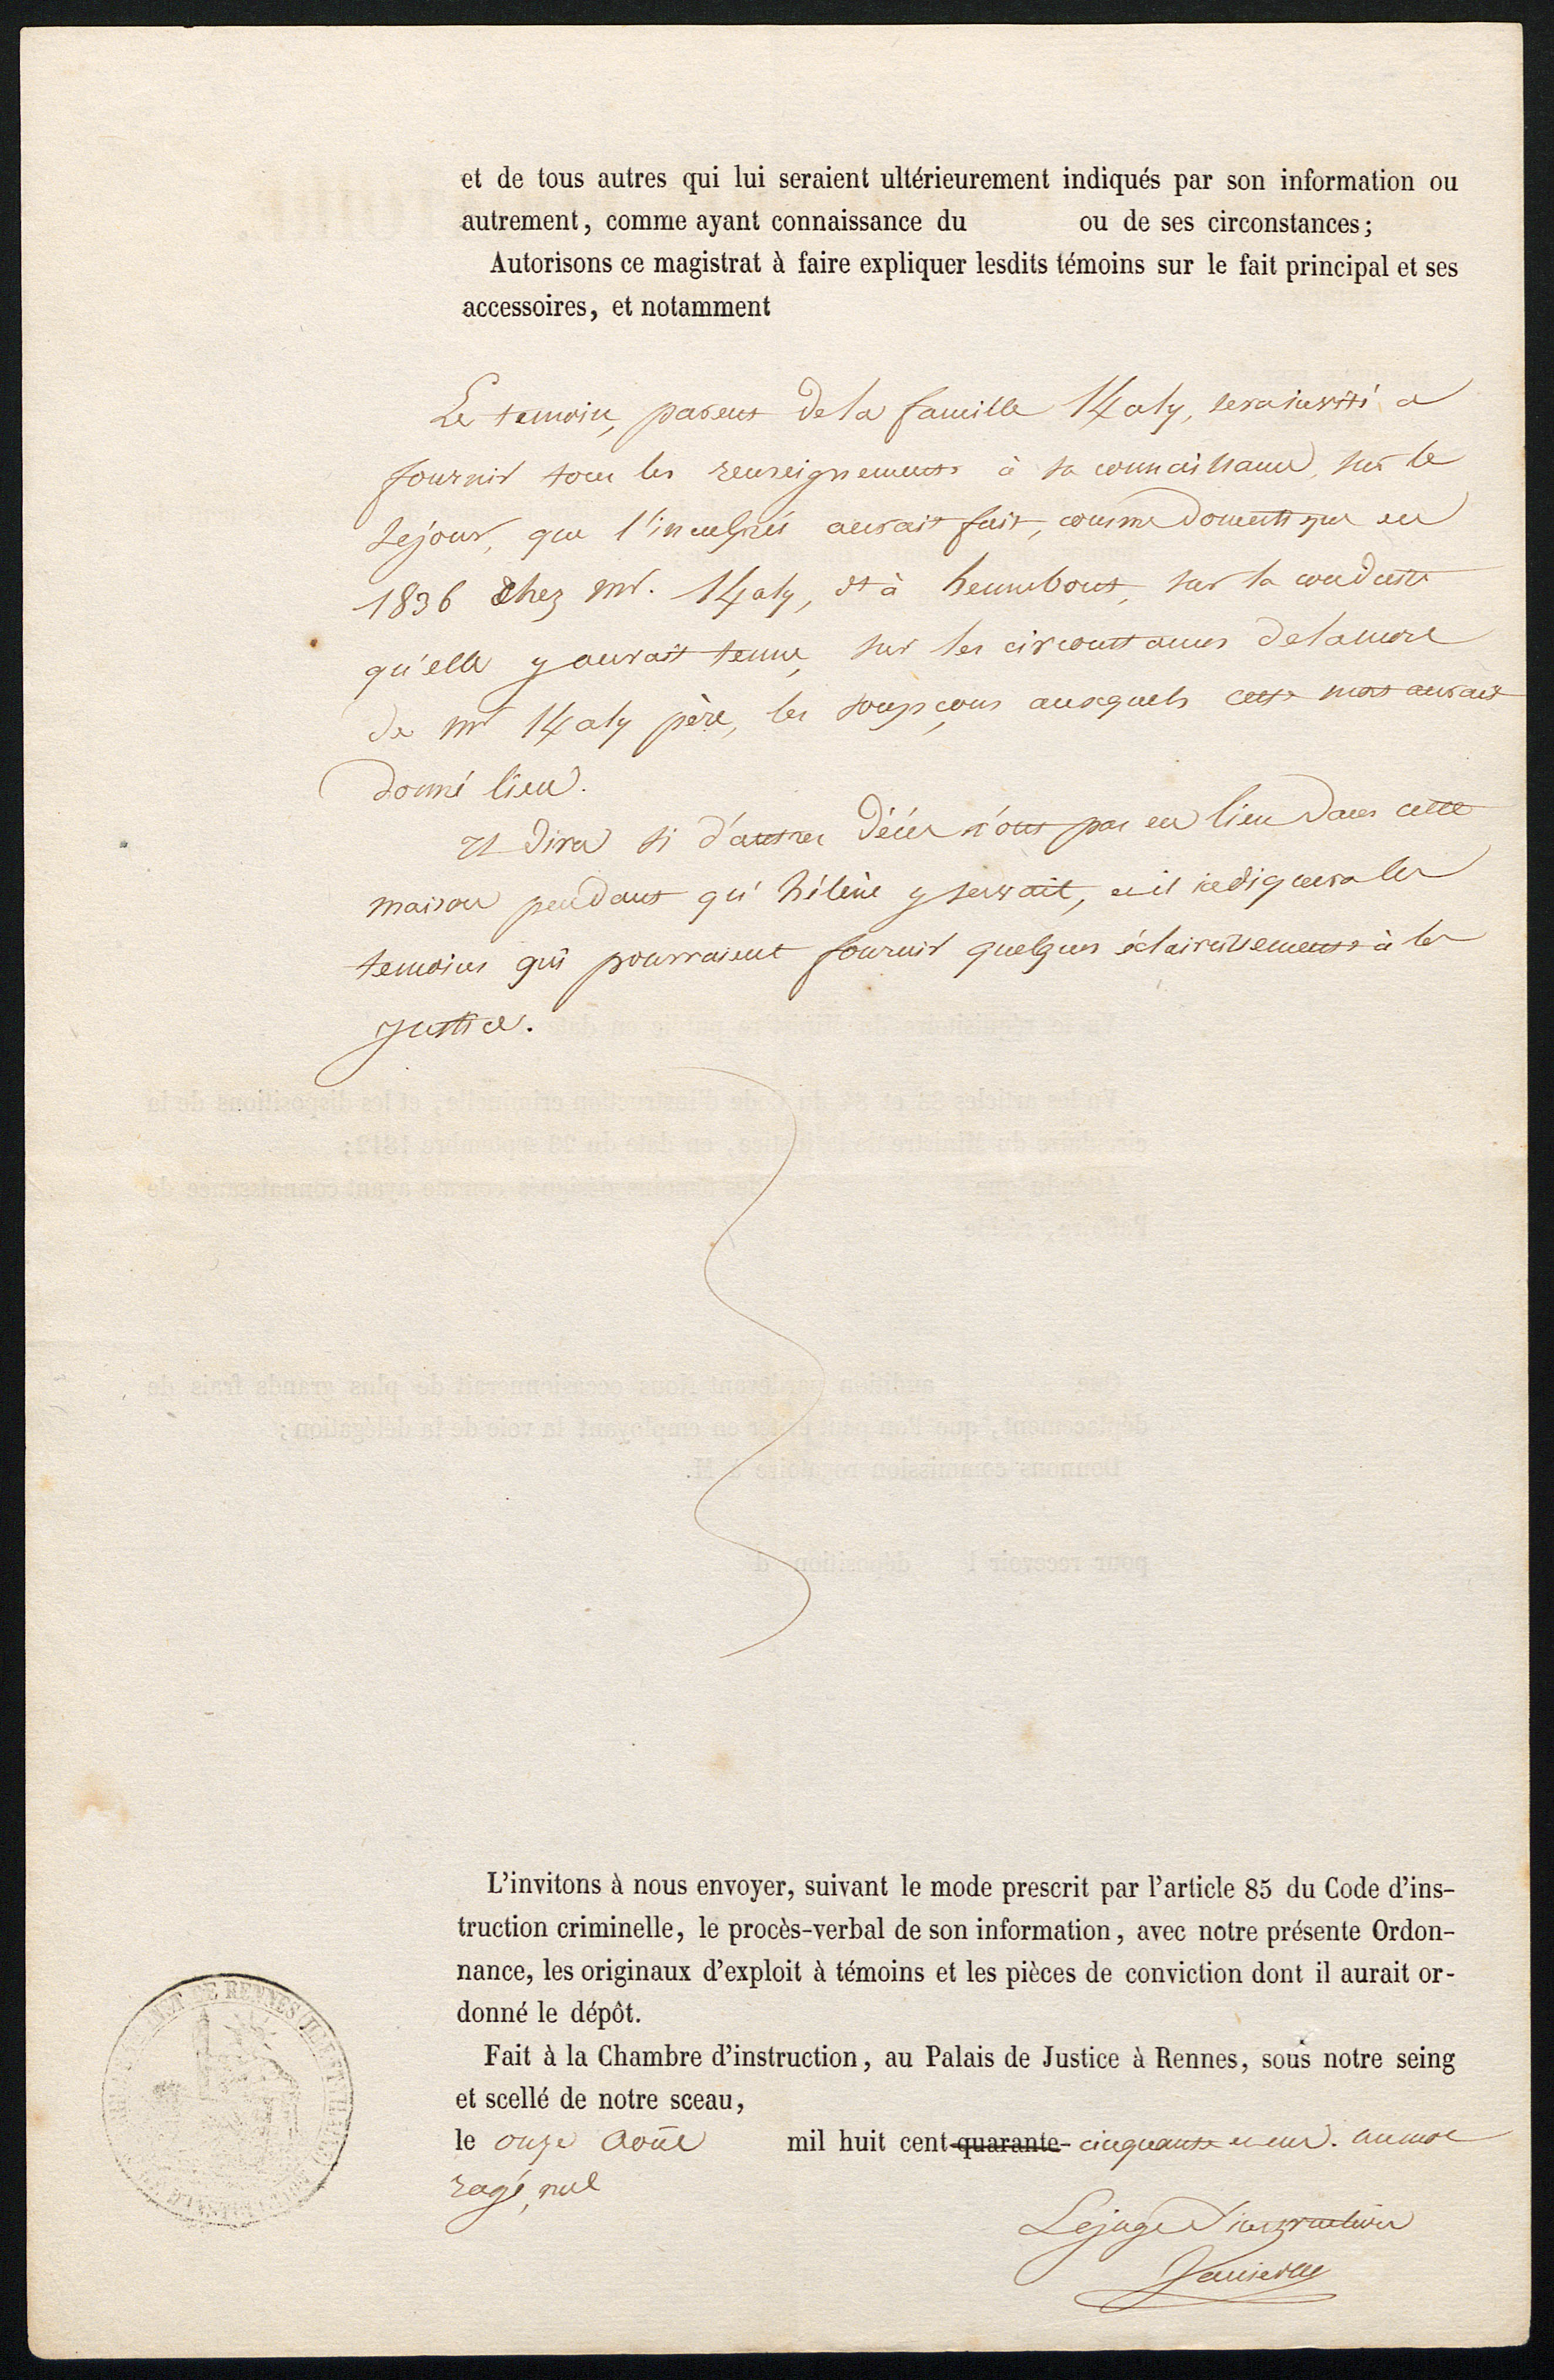 et de tous autres qui lui seraient ultérieurement indiqués par son information ou
autrement, comme ayant connaissance du ou de ses circonstances;
Autorisons ce magistrat à faire expliquer lesdits témoins sur le fait principal et ses
accessoires, et notamment
Le temoin, parent de la famille Kaly, sera invité a
fournir tous les renseignements à sa connaissance, sur le
séjour, que l'inculpée aurait fait, comme domestique en
1836 chez Mr. Kaly, et à hennebont, sur la conduite
qu'elle y aurait tenue, sur les circonstances de la mort
de Mr Kaly père, les soupçons auxquels cette mort aurait
donné lieu.
Il dira si d'autres décès n'ont pas eu lieu dans cette
maison pendant qu'hélène y servait, et il indiquera les
temoins qui pourraient fournir quelques éclaircissements à la
justice.
L'invitons à nous envoyer, suivant le mode prescrit par l'article 85 du Code d'ins-
truction criminelle, le procès-verbal de son information, avec notre présente Ordon-
nance, les originaux d'exploit à témoins et les pièces de conviction dont il aurait or-
donné le dépôt.
Fait à la Chambre d'instruction, au Palais de Justice à Rennes, sous notre seing
et scellé de notre sceau,
le onze août mil huit cent quarante- cinquante et un. un mot
rayé, nul
Le juge d'instruction
DE RENNES